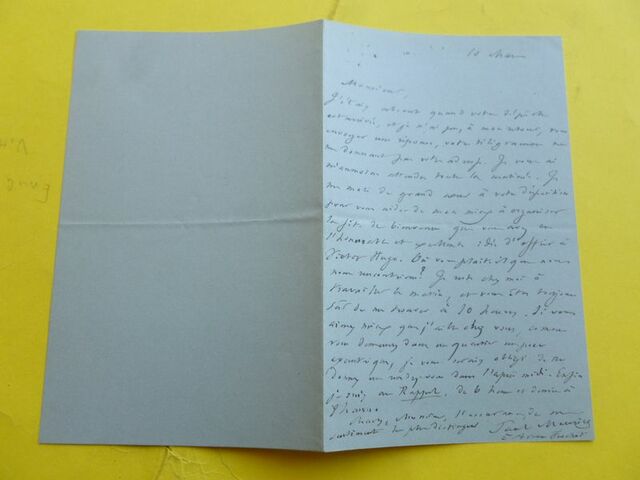 10 Mars
Monsieur,
J'étais absent quand votre dépêche
est arrivée, et je n'ai pu, à mon retour, vous
envoyer une réponse, votre télégramme ne
me donnant pas votre adresse. Je vous ai
néanmoins attendu toute la matinée. Je
me mets de grand cœur à votre disposition
pour vous aider de mon mieux à organiser
la fête de bienvenue que vous avez eu
l'honorable et excellente idée d'offrir à
Victor Hugo. Où vous plaît-il que nous
nous rencontrions? Je reste chez moi à
travailler le matin, et vous êtes toujours
sûr de me trouver à 10 heures. Si vous
aimez mieux que j'aille chez vous, comme
vous demeurez dans un quartier un peu
excentrique, je vous serais obligé de me
donner un rendez-vous dans l'après midi. Enfin
je suis au Rappel, de 6 heures et demie à
heures.
Monsieur, l'assurance de mes
sentiments les plus distingués
Paul Meurice